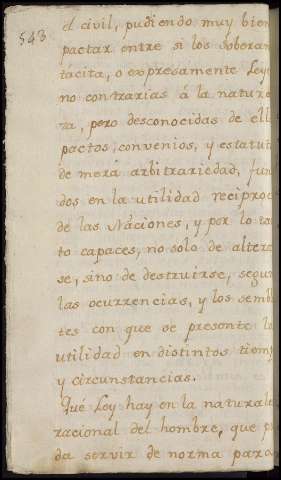 543
el civil, pudiendo muy bien
pactar entre sí los Soboran
tácita, o expresamente Leye
no contrarias á la nature
za, pero desconocidas de ell
pactos, convenios, y estatut
de mera arbitrariedad, fun
dos en la utilidad reciproc
de las Naciones, y por lo tan
to capaces, no solo de altera
se, sino de destruirse, segun
las ocurrencias, y los sembl
tes con que se presente la
utilidad en distintos tiemp
y circunstancias.
Qué Ley hay en la naturale
racional del hombre, que p
da servir de norma para